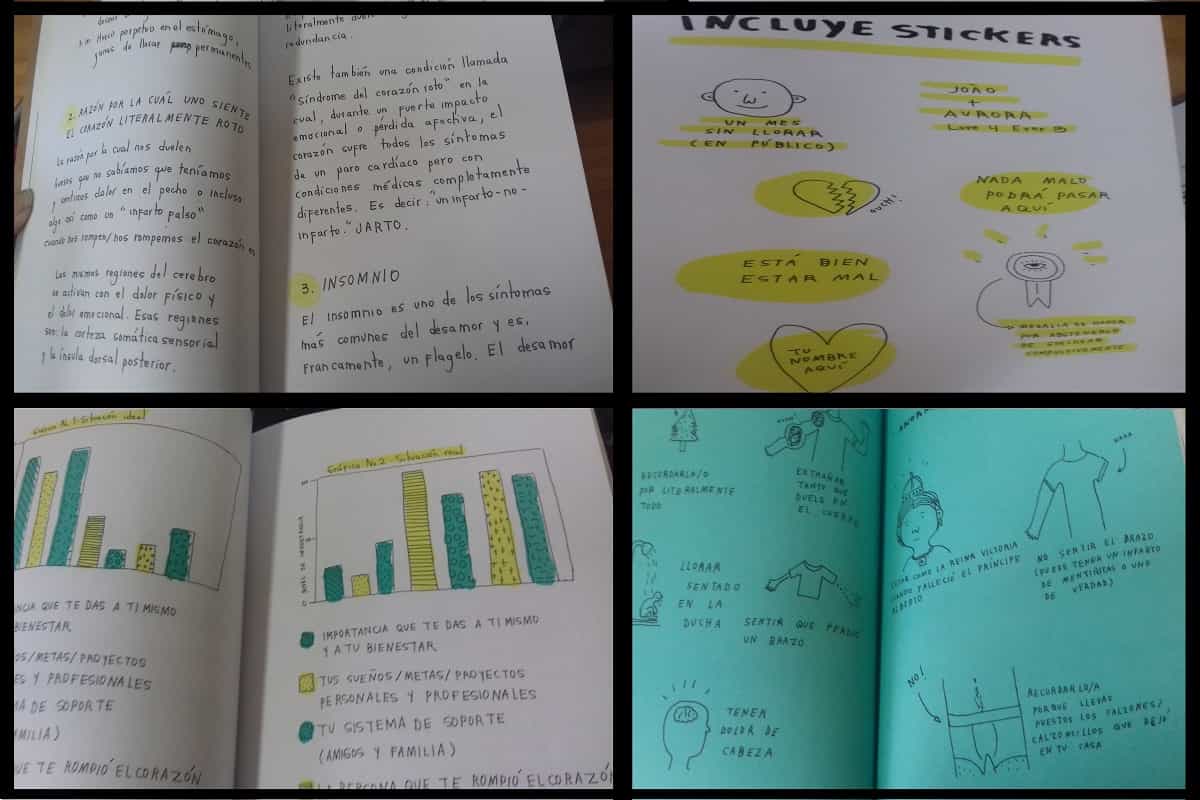 Hueco perpetuo en el estómago,
ganas de llorar permanentes
2. RAZÓN POR LA CUÁL UNO SIENTE
EL CORAZÓN LITERALMENTE ROTO
La razón por la cual nos duelen
huesos que no sabíamos que teníamos
y sentimos dolor en el pecho o incluso
algo así como un "infarto falso"
cuando nos rompen/nos rompemos el corazón es
Las mismas regiones del cerebro
se activan con el dolor físico y
el dolor emocional. Esas regiones
son: la corteza somática sensorial
y la ínsula dorsal posterior.
literalmente
redundancia.
Existe también una condición llamada
"síndrome del corazón roto" en la
cual, durante un fuerte impacto
emocional o pérdida afectiva, el
corazón sufre todos los síntomas
de un paro cardíaco pero con
condiciones médicas completamente
diferentes. Es decir: "un infarto-no-
infarto." JARTO.
3. INSOMNIO
El insomnio es uno de los síntomas
más comunes del desamor y es,
francamente, un flagelo. El desamor
INCLUYE STICKERS
UN MES
SIN LLORAR
(EN PÚBLICO)
JOÃO
+
AURORA
Love 4 Ever
OUCH!
NADA MALO
PODRÁ PASAR
AQUÍ
ESTÁ BIEN
ESTAR MAL
TU
NOMBRE
AQUÍ
MEDALLA DE HONOR
POR ABSTENERLE
DE STALKEAR
COMPULSIVAMENTE
Gráfica No. 1 - Situación ideal
NCIA QUE TE DAS A TI MISMO
BIENESTAR.
OS/METAS/PROYECTOS
ES Y PROFESIONALES
MA DE SOPORTE
AMILIA)
UE TE ROMPIÓ EL CORAZÓN
Gráfica No. 2 - Situación real
NIVEL DE IMPORTANCIA
0
IMPORTANCIA QUE TE DAS A TI MISMO
Y A TU BIENESTAR.
TUS SUEÑOS/METAS/PROYECTOS
PERSONALES Y PROFESIONALES
TU SISTEMA DE SOPORTE
(AMIGOS Y FAMILIA)
LA PERSONA QUE TE ROMPIÓ EL CORAZÓN
RECORDARLA/O
POR LITERALMENTE
TODO
EXTRAÑAR
TANTO QUE
DUELE EN
EL CUERPO
LLORAR
SENTADO
EN LA
DUCHA
SENTIR QUE PERDIÓ
UN BRAZO
TENER
DOLOR DE
CABEZA
NADA
ESTAR COMO LA REINA VICTORIA
CUANDO FALLECIÓ EL PRÍNCIPE
ALBERTO
NO SENTIR EL BRAZO
(PUEDE TENER UN INFARTO
DE MENTIRITAS O UNO
DE VERDAD)
NO!
RECORDARLO/A
PORQUE LLEVAS
PUESTOS LOS CALZONES/
CALZONCILLOS QUE DEJÓ
EN TU CASA